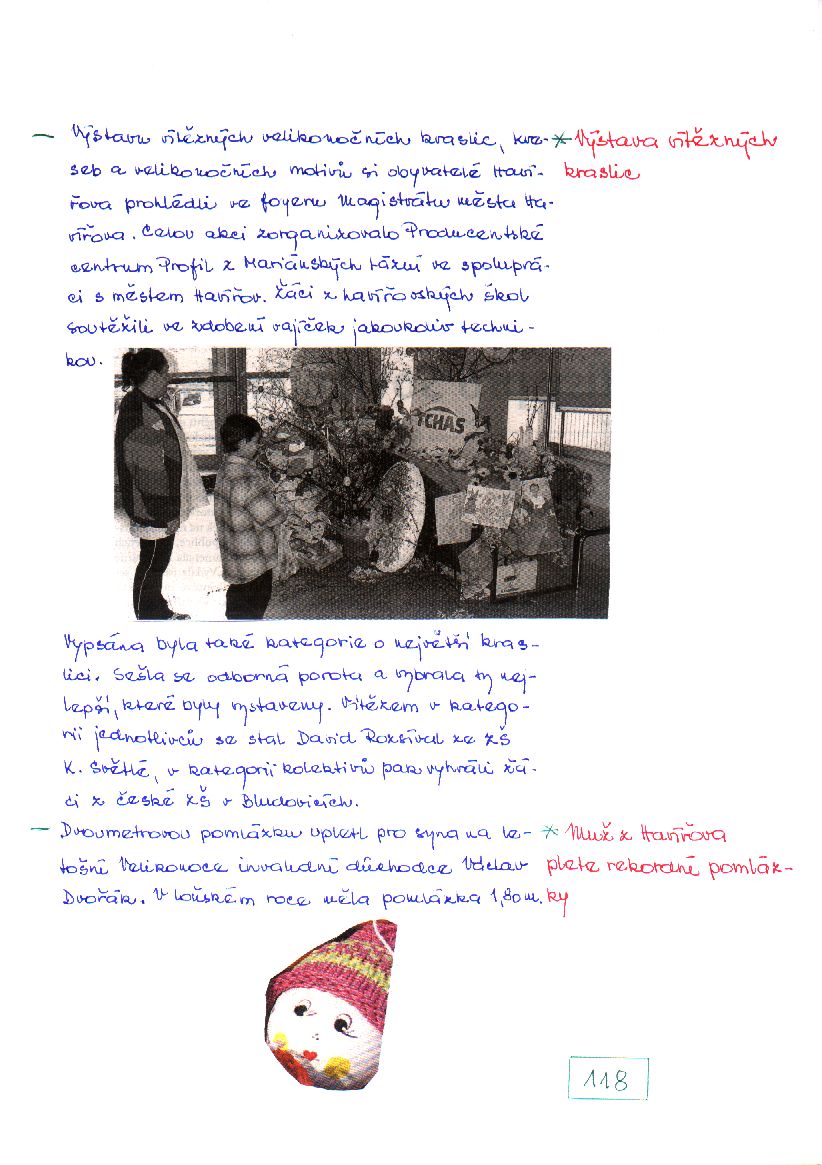 – Výstavu vítězných velikonočních kraslic, kve- * Výstava vítězných
seb a velikonočních motivů si obyvatelé Haví- kraslic
řova prohlédli ve foyeru Magistrátu města Ha-
vířova. Celou akci zorganizovalo Producentské
centrum Profil z Mariánských Lázní ve spoluprá-
ci s městem Havířov. Žáci z havířovských škol
soutěžili ve zdobení vajíček jakoukoliv techni-
kou.
TCHAS
Vypsána byla také kategorie o největší kras-
lici. Sešla se odborná porota a vybrala ty nej-
lepší, které byly vystaveny. Vítězem v katego-
rii jednotlivců se stal David Rozsíval ze ZŠ
K. Světlé, v kategorii kolektivů pak vyhráli žá-
ci z české ZŠ v Bludovicích.
– Dvoumetrovou pomlázku upletl pro syna na le- * Muž z Havířova
tošní Velikonoce invalidní důchodce Václav plete rekordní pomláz-
Dvořák. V loňském roce měla pomlázka 1,80 m. ky
118